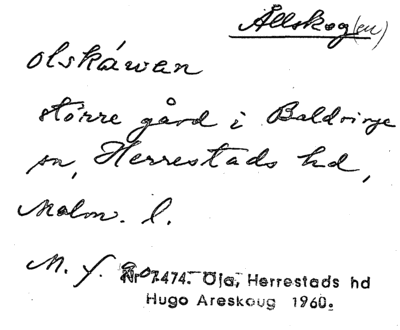 Ållskog(en)
olskáwan
större gård i Baldringe
sn, Herrestads hd,
Malm. l.
M. f.
Nr 7474. Öja, Herrestads hd
Hugo Areskoug 1960.